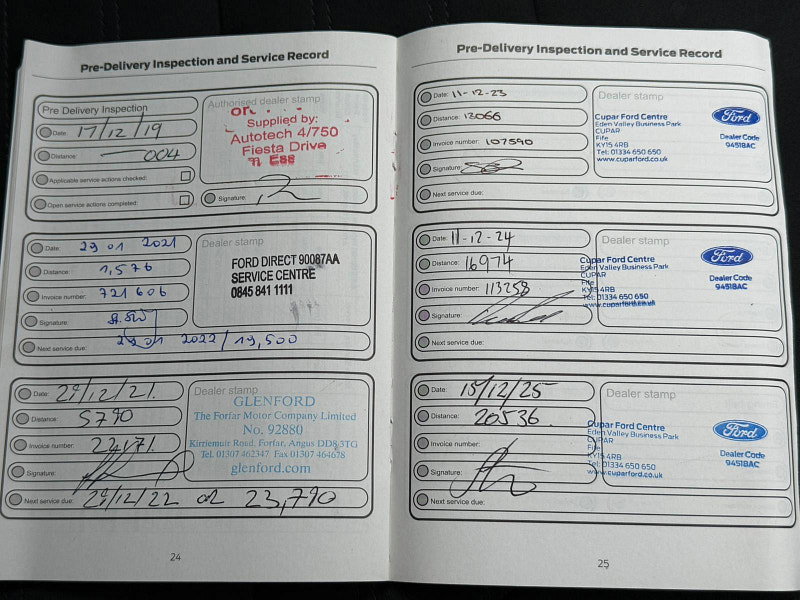 Pre-Delivery Inspection and Service Record
Pre Delivery Inspection
Date: 17/12/19
Distance: 004
Applicable service actions checked:
Open service actions completed:
Authorised dealer stamp
Supplied by:
Autotech 4/750
Fiesta Drive
Signature:
Date: 29 01 2021
Distance: 1,576
Invoice number: 721606
Signature:
Next service due: 29 01 2022 / 19,500
Dealer stamp
FORD DIRECT 90087AA
SERVICE CENTRE
0845 841 1111
Date: 29/12/21.
Distance: 5790
Invoice number: 22171
Signature:
Next service due: 29/12/22 or 23,790
Dealer stamp
GLENFORD
The Forfar Motor Company Limited
No. 92880
Kirriemuir Road, Forfar, Angus DD8 3TG
Tel. 01307 462347 Fax 01307 464678
glenford.com
24
Pre-Delivery Inspection and Service Record
Date: 11-12-23
Distance: 13066
Invoice number: 107590
Signature:
Next service due:
Dealer stamp
Cupar Ford Centre
Eden Valley Business Park
CUPAR
Fife
KY15 4RB
Tel: 01334 650 650
www.cuparford.co.uk
Ford
Dealer Code
94518AC
Date: 11-12-24
Distance: 16974
Invoice number: 113258
Signature:
Next service due:
Dealer stamp
Cupar Ford Centre
Eden Valley Business Park
CUPAR
Fife
KY15 4RB
Tel: 01334 650 650
www.cuparford.co.uk
Ford
Dealer Code
94518AC
Date: 15/12/25
Distance: 20536
Invoice number:
Signature:
Next service due:
Dealer stamp
Cupar Ford Centre
Eden Valley Business Park
CUPAR
Fife
KY15 4RB
Tel: 01334 650 650
www.cuparford.co.uk
Ford
Dealer Code
94518AC
25